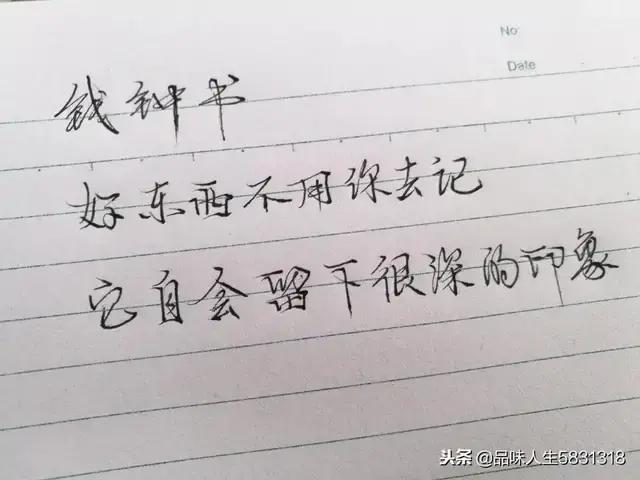 No
Date
钱钟书
好东西不用你去记
它自会留下很深的印象
头条 @品味人生5831318